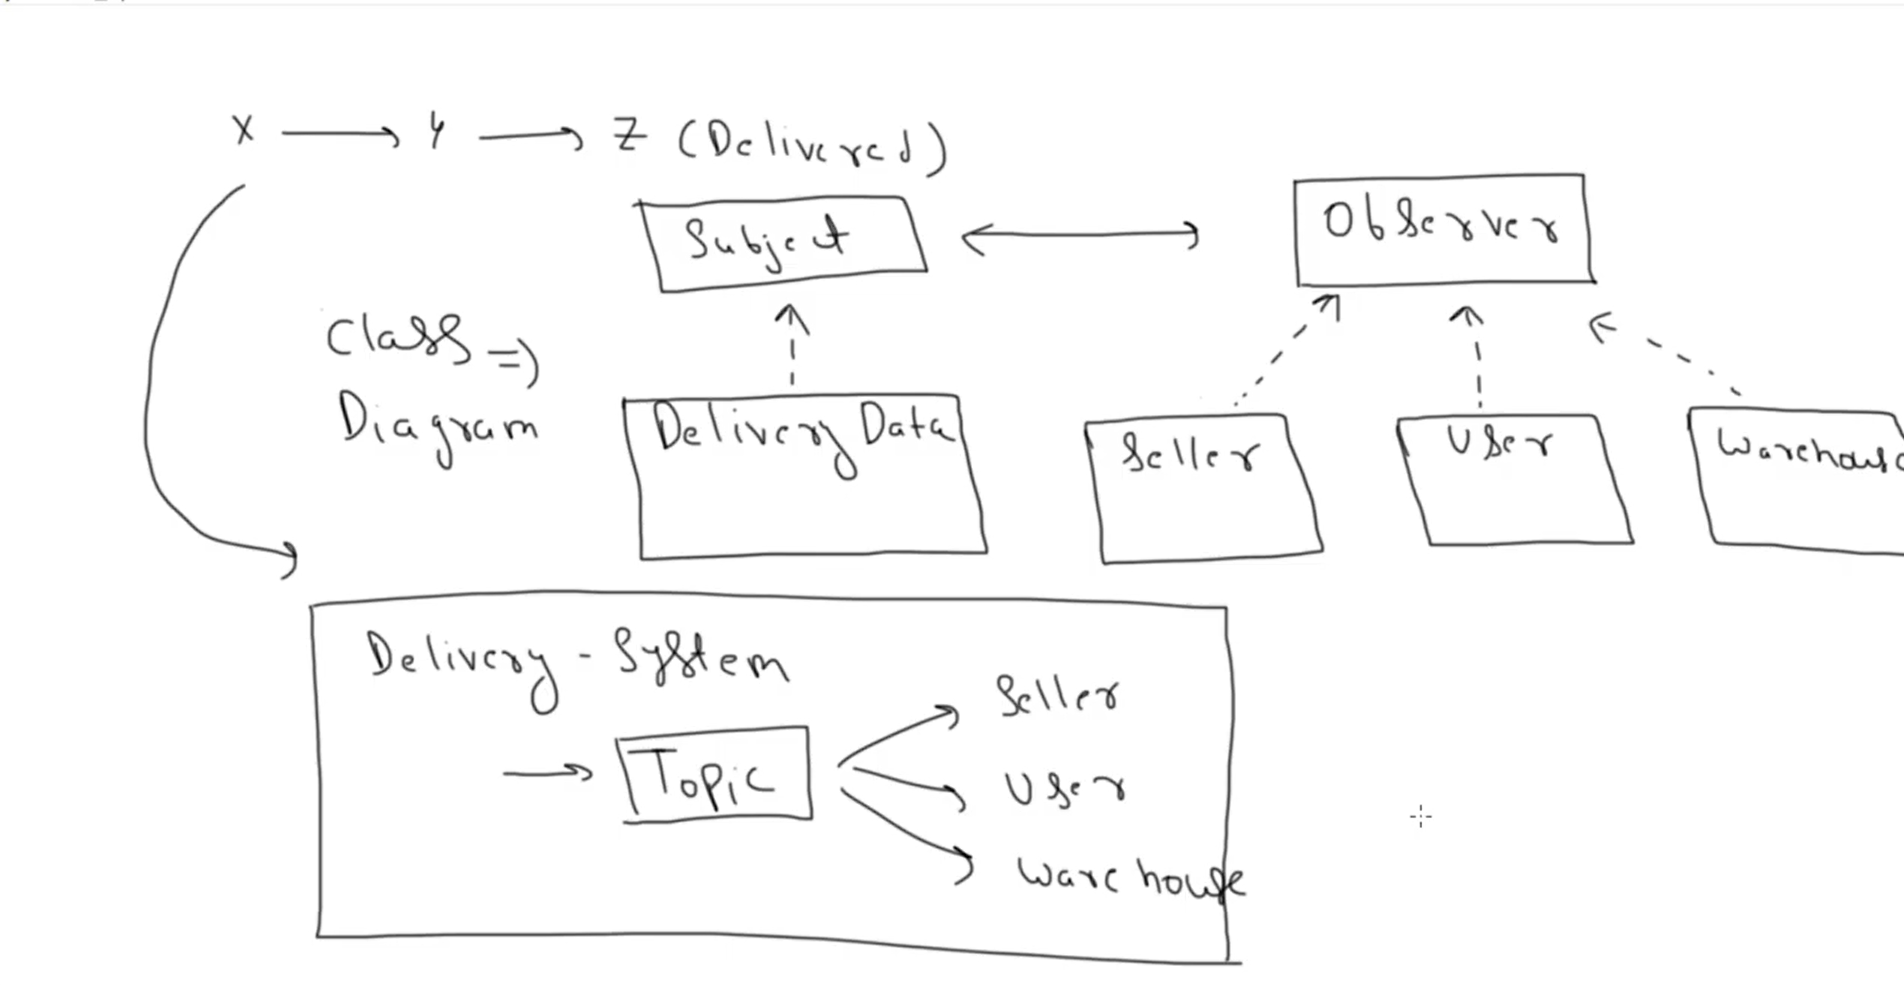 X → Y → Z (Delivered)
Subject ↔ Observer
Class =>
Diagram
Delivery Data
Seller
User
Warehouse
Delivery - System
→ Topic
Seller
User
Warehouse